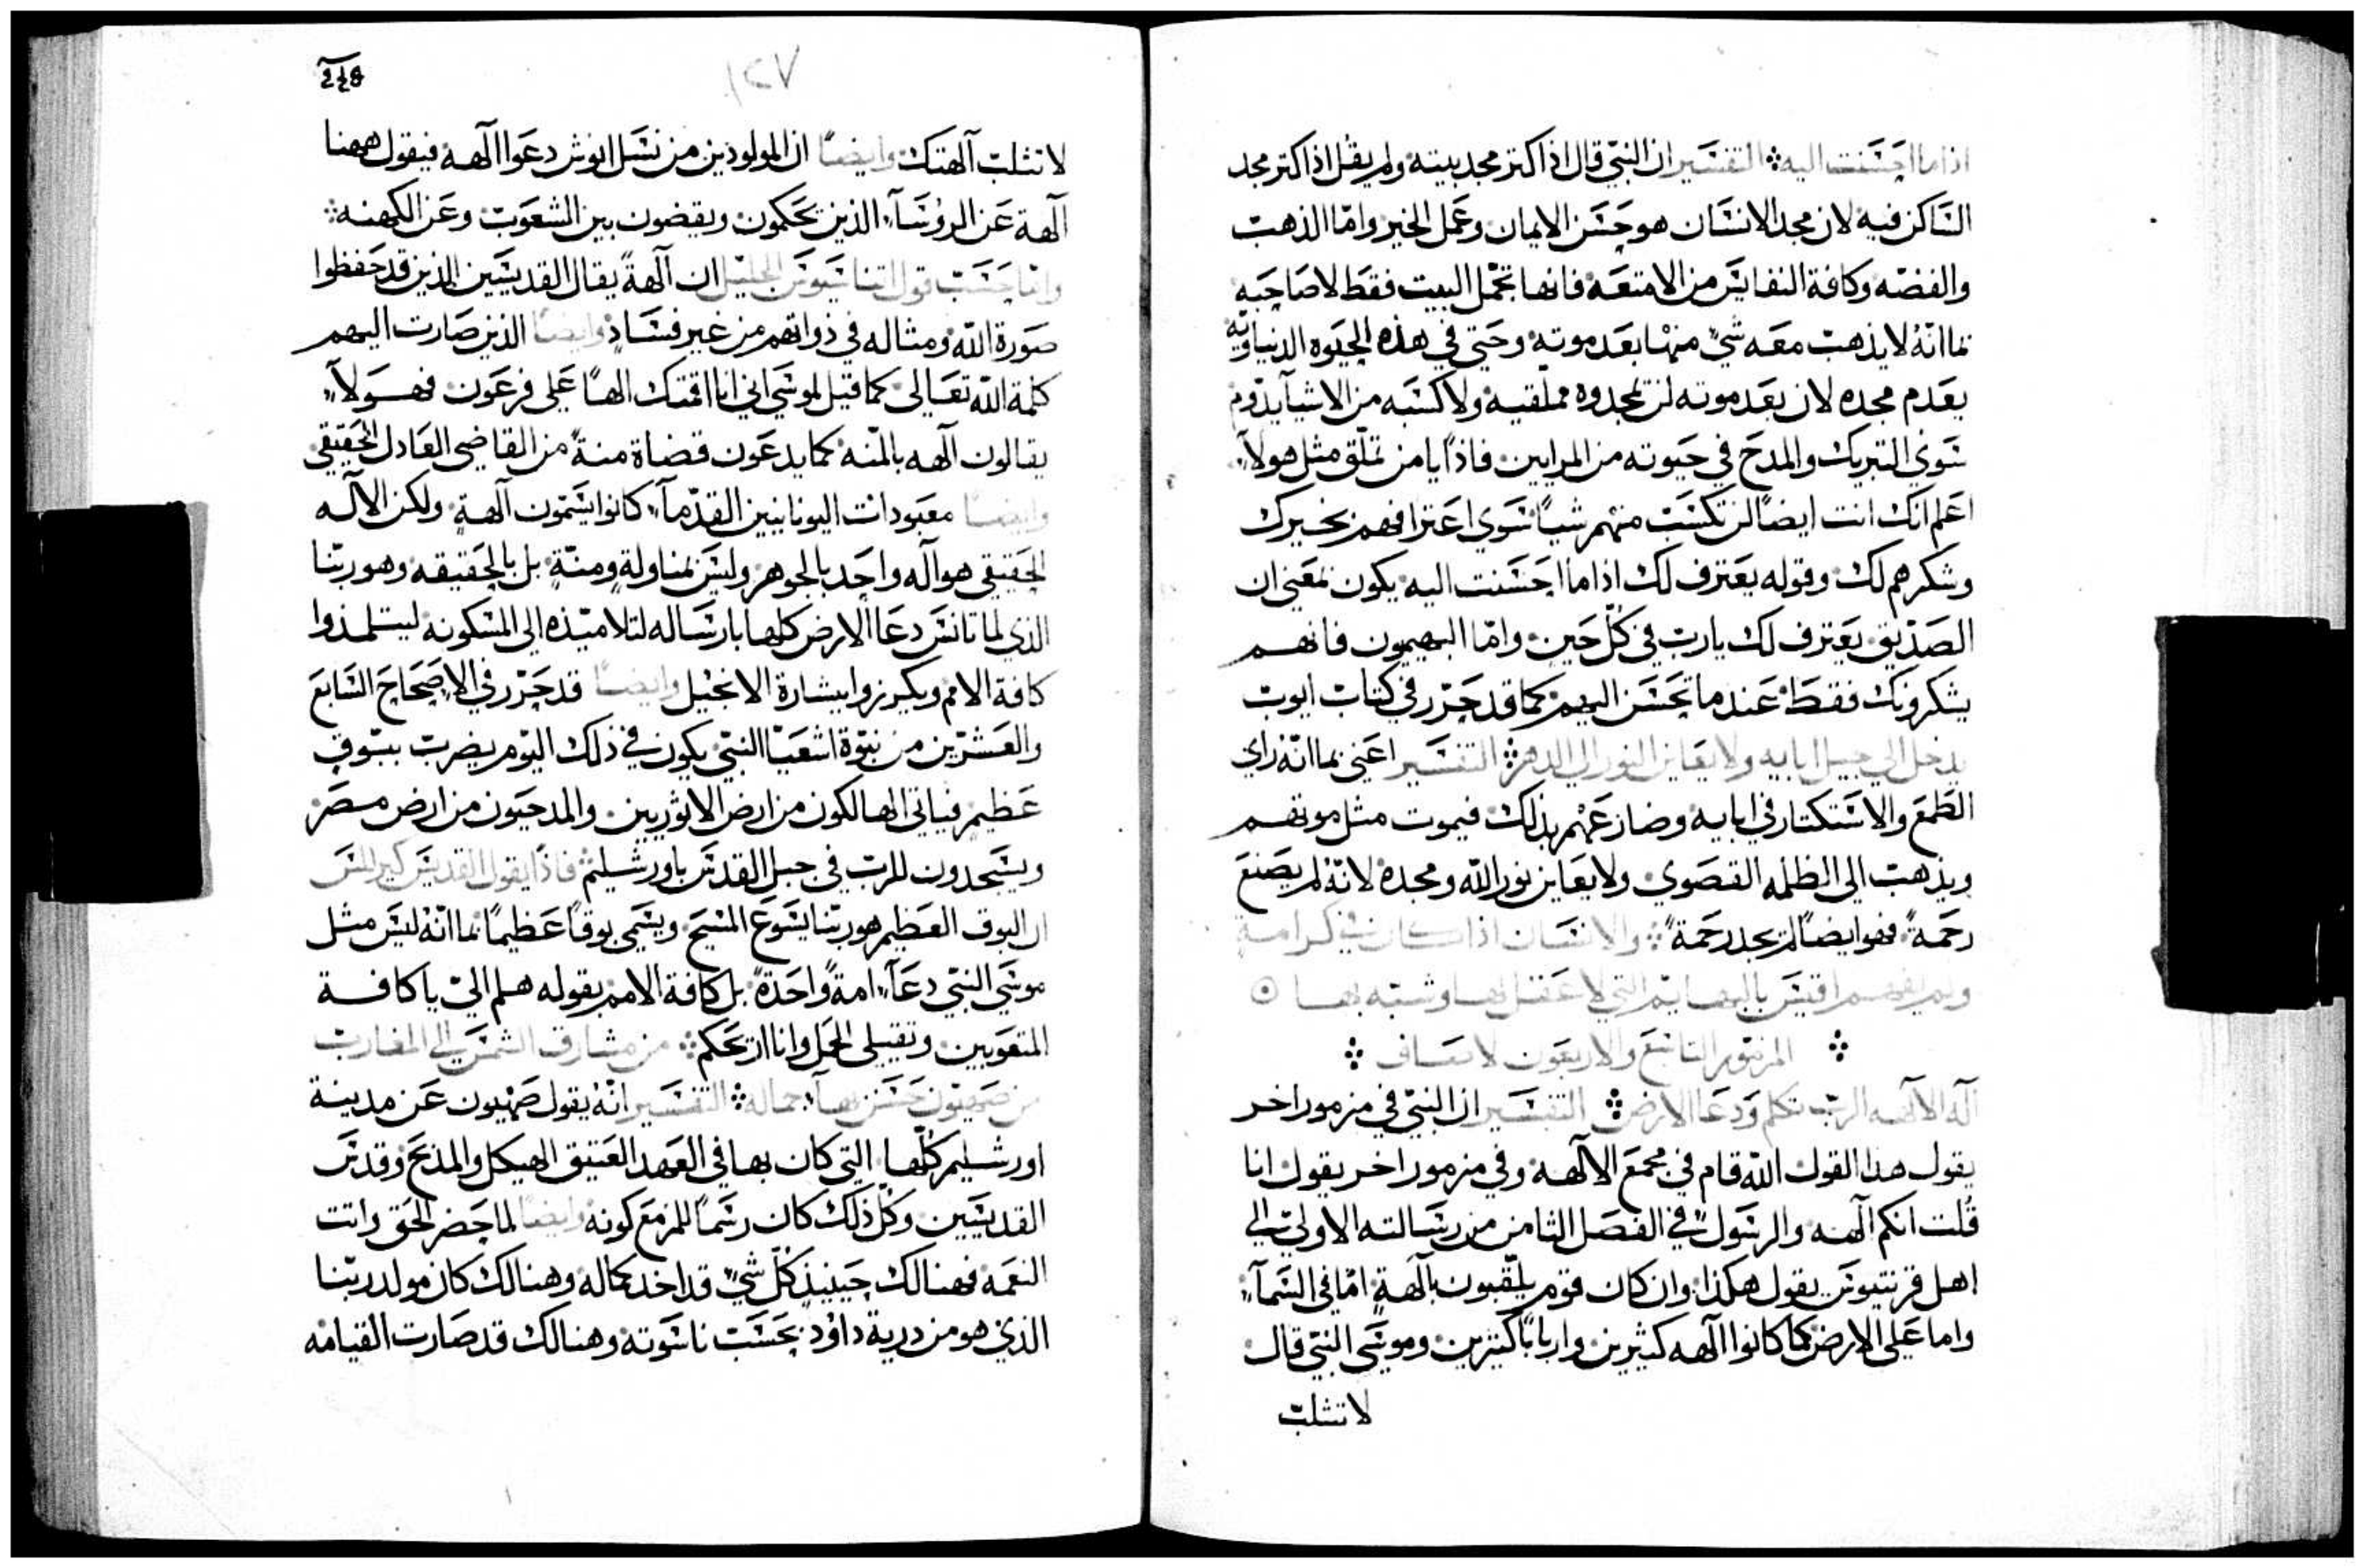 اذا ما احسنت اليه ܀ التفسير ان النبي قال اذا اكتر مجد بيته ولم يقل اذا اكتر مجد
الساكن فيه لان مجد الانسان هو حسن الايمان وعمل الخير واما الذهب
والفضه وكافة النفايس من الامتعه فانها تجمل البيت فقط لا صاحبه
بما انه لا يذهب معه شي منها بعد موته وحتى في هذه الحيوه الدنياويه
يعدم مجده لان بعد موته لن يمجدوه مملقيه ولا كسبه من الاشيا يدوم
سوي التبريك والمدح في حيوته من المرايين فاذا يا من تملق مثل هولاء
اعلم انك انت ايضا لن تكسب منهم شيا سوي اعترافهم بخيرك
وشكرهم لك وقوله يعترف لك اذا ما احسنت اليه يكون بمعني ان
الصديق يعترف لك يا رب في كل حين واما البهيميون فانهم
يشكرونك فقط عند ما تحسن اليهم كما قد حرر في كتاب ايوب
يدخل الي جيل ابايه ولا يعاين النور الي الدهر ܀ التفسير اعني بما انه راي
الطمع والاستكتار في ابايه وضارعهم بذلك فيموت مثل موتهم
ويذهب الى الظلمه القصوي ولا يعاين نور الله ومجده لانه لم يصنع
رحمة فهو ايضا لم يجد رحمة ܀ والانسان اذا كان في كرامة
ولم يفهم اقيس بالبهايم التي لا عقل لها وشبه بها
܀ المزمور التاسع والاربعون لاساف ܀
اله الالهه الرب تكلم ودعا الارض ܀ التفسير ان النبي في مزمور اخر
يقول هذا القول الله قام في مجمع الالهه وفي مزمور اخر يقول انا
قلت انكم الهه والرسول في الفصل الثامن من رسالته الاولي الي
اهل قرنتيوس يقول هكذا وان كان قوم يلقبون بالهة اما في السمآء
واما على الارض كما كانوا الهه كثيرين واربابا كثيرين وموسى النبي قال
لا تثلب
248
١٢٧
لا تثلب آلهتك وايضا ان المولودين من نسل انوش دعوا آلهه فيقول ههنا
آلهة عن الروسآء الذين يحكمون ويقضون بين الشعوب وعن الكهنه
واما حسب قول اتناسيوس الجليل ان آلهة يقال القديسين الذين قد حفظوا
صورة الله ومثاله في ذواتهم من غير فساد وايضا الذين صارت اليهم
كلمة الله تعالى كما قيل لموسي اني انا اقمتك الها على فرعون فهولآء
يقالون آلهه بالمنه كما يدعون قضاة منة من القاضي العادل الحقيقي
وايضا معبودات اليونانيين القدمآء كانوا يسمون آلهة ولكن الاله
الحقيقي هو اله واحد بالجوهر وليس بمناولة ومنة بل بالحقيقه وهو ربنا
الذي لما تانس دعا الارض كلها بارساله لتلاميذه الى المسكونه ليتلمذوا
كافة الامم ويكرزوا ببشارة الانجيل وايضا قد حرر في الاصحاح السابع
والعشرين من نبوة اشعيا النبي يكون في ذلك اليوم يضرب ببوق
عظيم فياتي الهالكون من ارض الاثوريين والمدحيون من ارض مصر
ويسجدون للرب في جبل القدس باورشليم فاذا يقول القديس كيرللس
ان البوق العظيم هو ربنا يسوع المسيح ويسمى بوقا عظيما بما انه ليس مثل
موسي النبي دعآء امة واحدة بل كافة الامم بقوله هلم الي يا كافة
المتعوبين وثقيلى الحمل وانا اريحكم ܀ من مشارق الشمس الى المغارب
من صهيون حسن بهآء جماله ܀ التفسير انه يقول صهيون عن مدينة
اورشليم كلها التي كان بها في العهد العتيق الهيكل والمذبح وقدس
القديسين وكل ذلك كان رسما للمزمع كونه وايضا لما حضر الحق واتت
النعمه فهنالك حينيذ كل شي قد اخد كماله وهنالك كان مولد ربنا
الذي هو من درية داود بحسب ناسوته وهنالك قد صارت القيامه